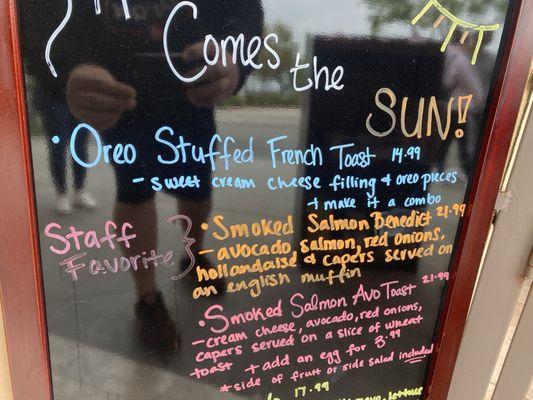 Comes the
SUN!
• Oreo Stuffed French Toast 14.99
- sweet cream cheese filling & oreo pieces
+ make it a combo
• Smoked Salmon Benedict 21.99
Staff
Favorite
- avocado, salmon, red onions,
hollandaise & capers served on
an english muffin
• Smoked Salmon Avo Toast 21.99
- cream cheese, avocado, red onions,
capers served on a slice of wheat
toast + add an egg for 3.99
* side of fruit or side salad included
17.99